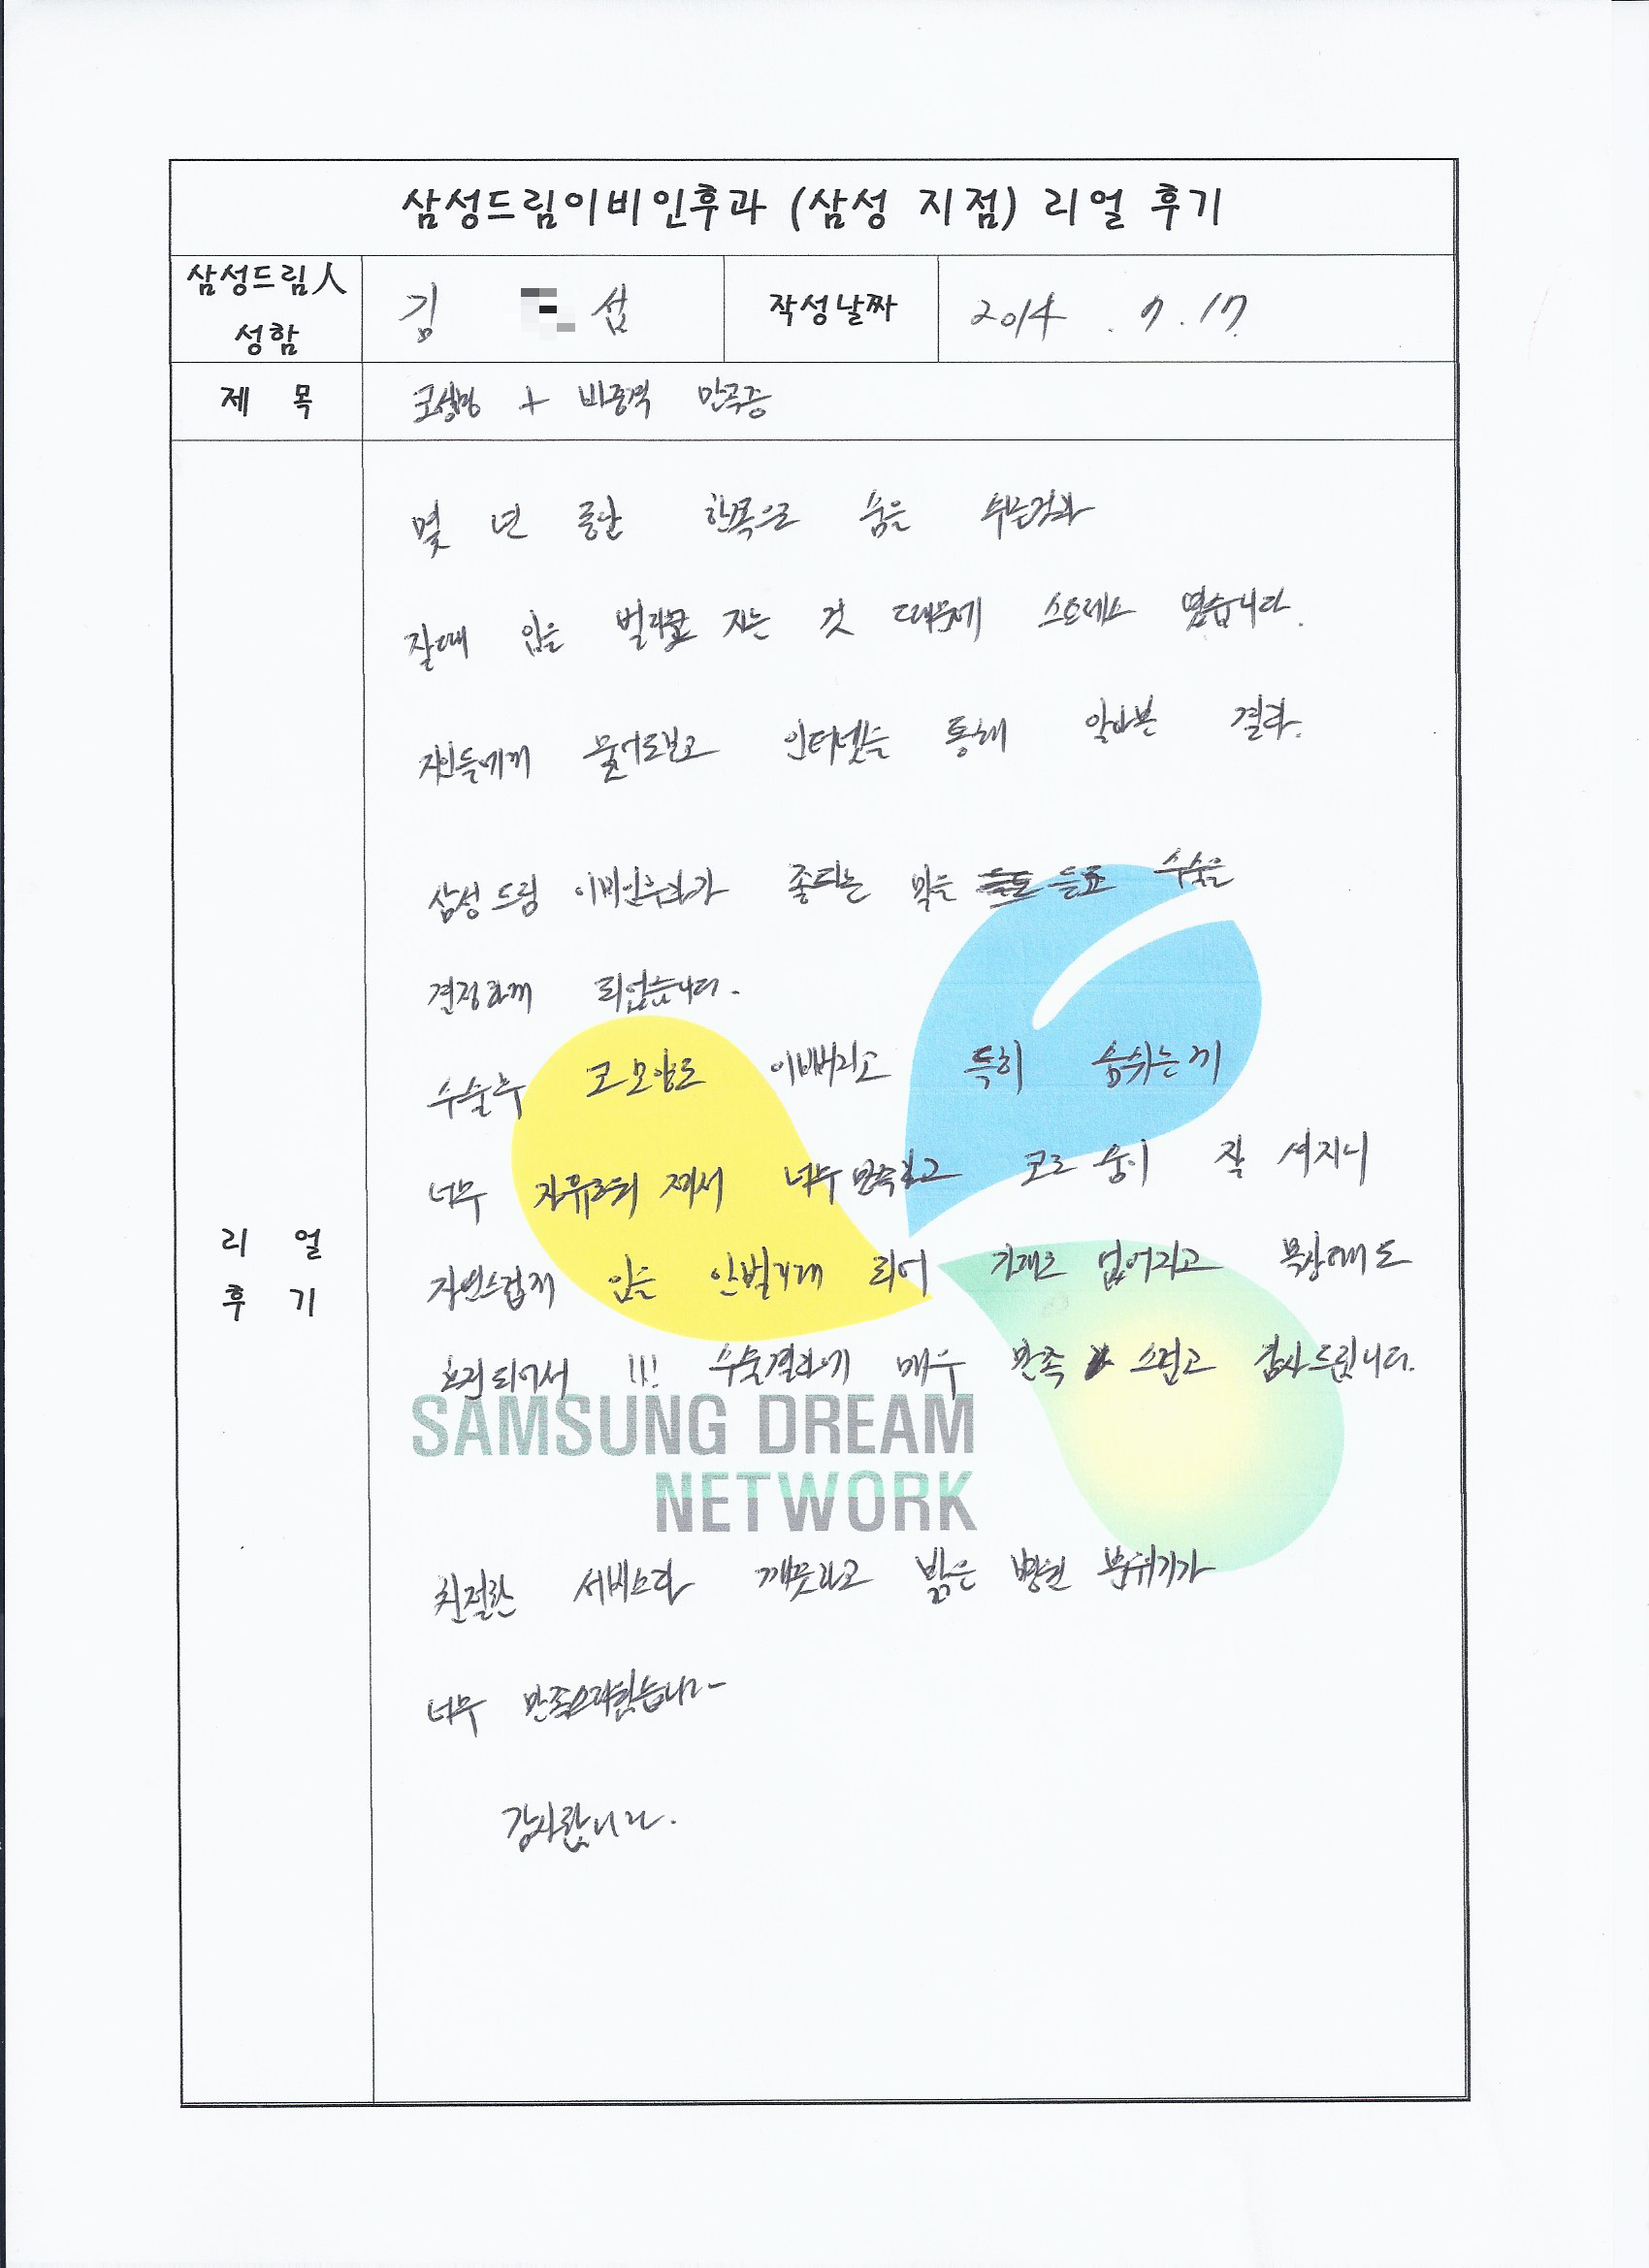 삼성드림이비인후과 (삼성 지점) 리얼 후기
삼성드림人 성함
김 섭
작성날짜
2014 . 7. 17
제 목
코성형 + 비중격 만곡증
몇 년 동안 한쪽으로 숨을 쉬는것과
잘때 입을 벌리고 자는 것 때문에 스트레스 였습니다.
지인들에게 물어도보고 인터넷을 통해 알아본 결과.
삼성드림 이비인후과가 좋다는 말을 듣고 수술을
결정하게 되었습니다.
수술후 코모양도 이뻐지고 특히 숨쉬는게
너무 자유로워 져서 너무 만족하고 코로 숨이 잘 쉬지니
자연스럽게 입을 안벌리게 되어 없어지고
되어서 !!! 수술결과에 매우 만족 스럽고 감사드립니다.
SAMSUNG DREAM
NETWORK
리 얼
후 기
친절한 서비스와 깨끗하고 밝은 병원 분위기가
너무 만족스러웠습니다~
감사합니다.